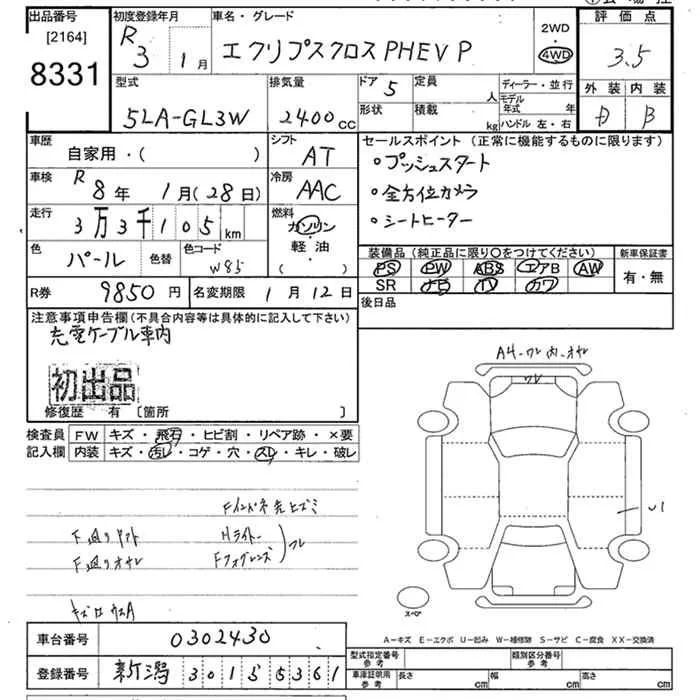 出品番号
[2164]
8331
初度登録年月
R 3 1月
車名・グレード
エクリプスクロス PHEV P
2WD
4WD
評価点
3.5
外装 内装
B
型式
5LA-GL3W
排気量
2400cc
ドア 5
形状
定員 人
積載 kg
ディーラー・並行
モデル年式 年
ハンドル 左・右
車歴
自家用・( )
シフト
AT
車検
R 8年 1月(28日)
冷房
AAC
走行
3万3千105km
燃料
ガソリン
軽・油
( )
色
パール
色替
色コード
W85
セールスポイント(正常に機能するものに限ります)
•プッシュスタート
•全方位カメラ
•シートヒーター
装備品(純正品に限り○をつけてください)
PS PW ABS エアB AW
SR ナビ TV カワ
新車保証書
有・無
R券 9850円
名変期限 1月12日
後日品
注意事項申告欄(不具合内容等は具体的に記入して下さい)
充電ケーブル車内
初出品
修復歴 有 [箇所 ]
検査員記入欄
FW キズ・飛石・ヒビ割・リペア跡・×要
内装 キズ・汚レ・コゲ・穴・スレ・キレ・破レ
Hライト
Fフォグレンズ
スペア
A-キズ E-エクボ U-凹み W-補修跡 S-サビ C-腐食 XX-交換済
車台番号 0302430
登録番号 新潟 301
型式指定番号 参考
類別区分番号 参考
車庫証明用 参考
長さ cm
幅 cm
高さ cm